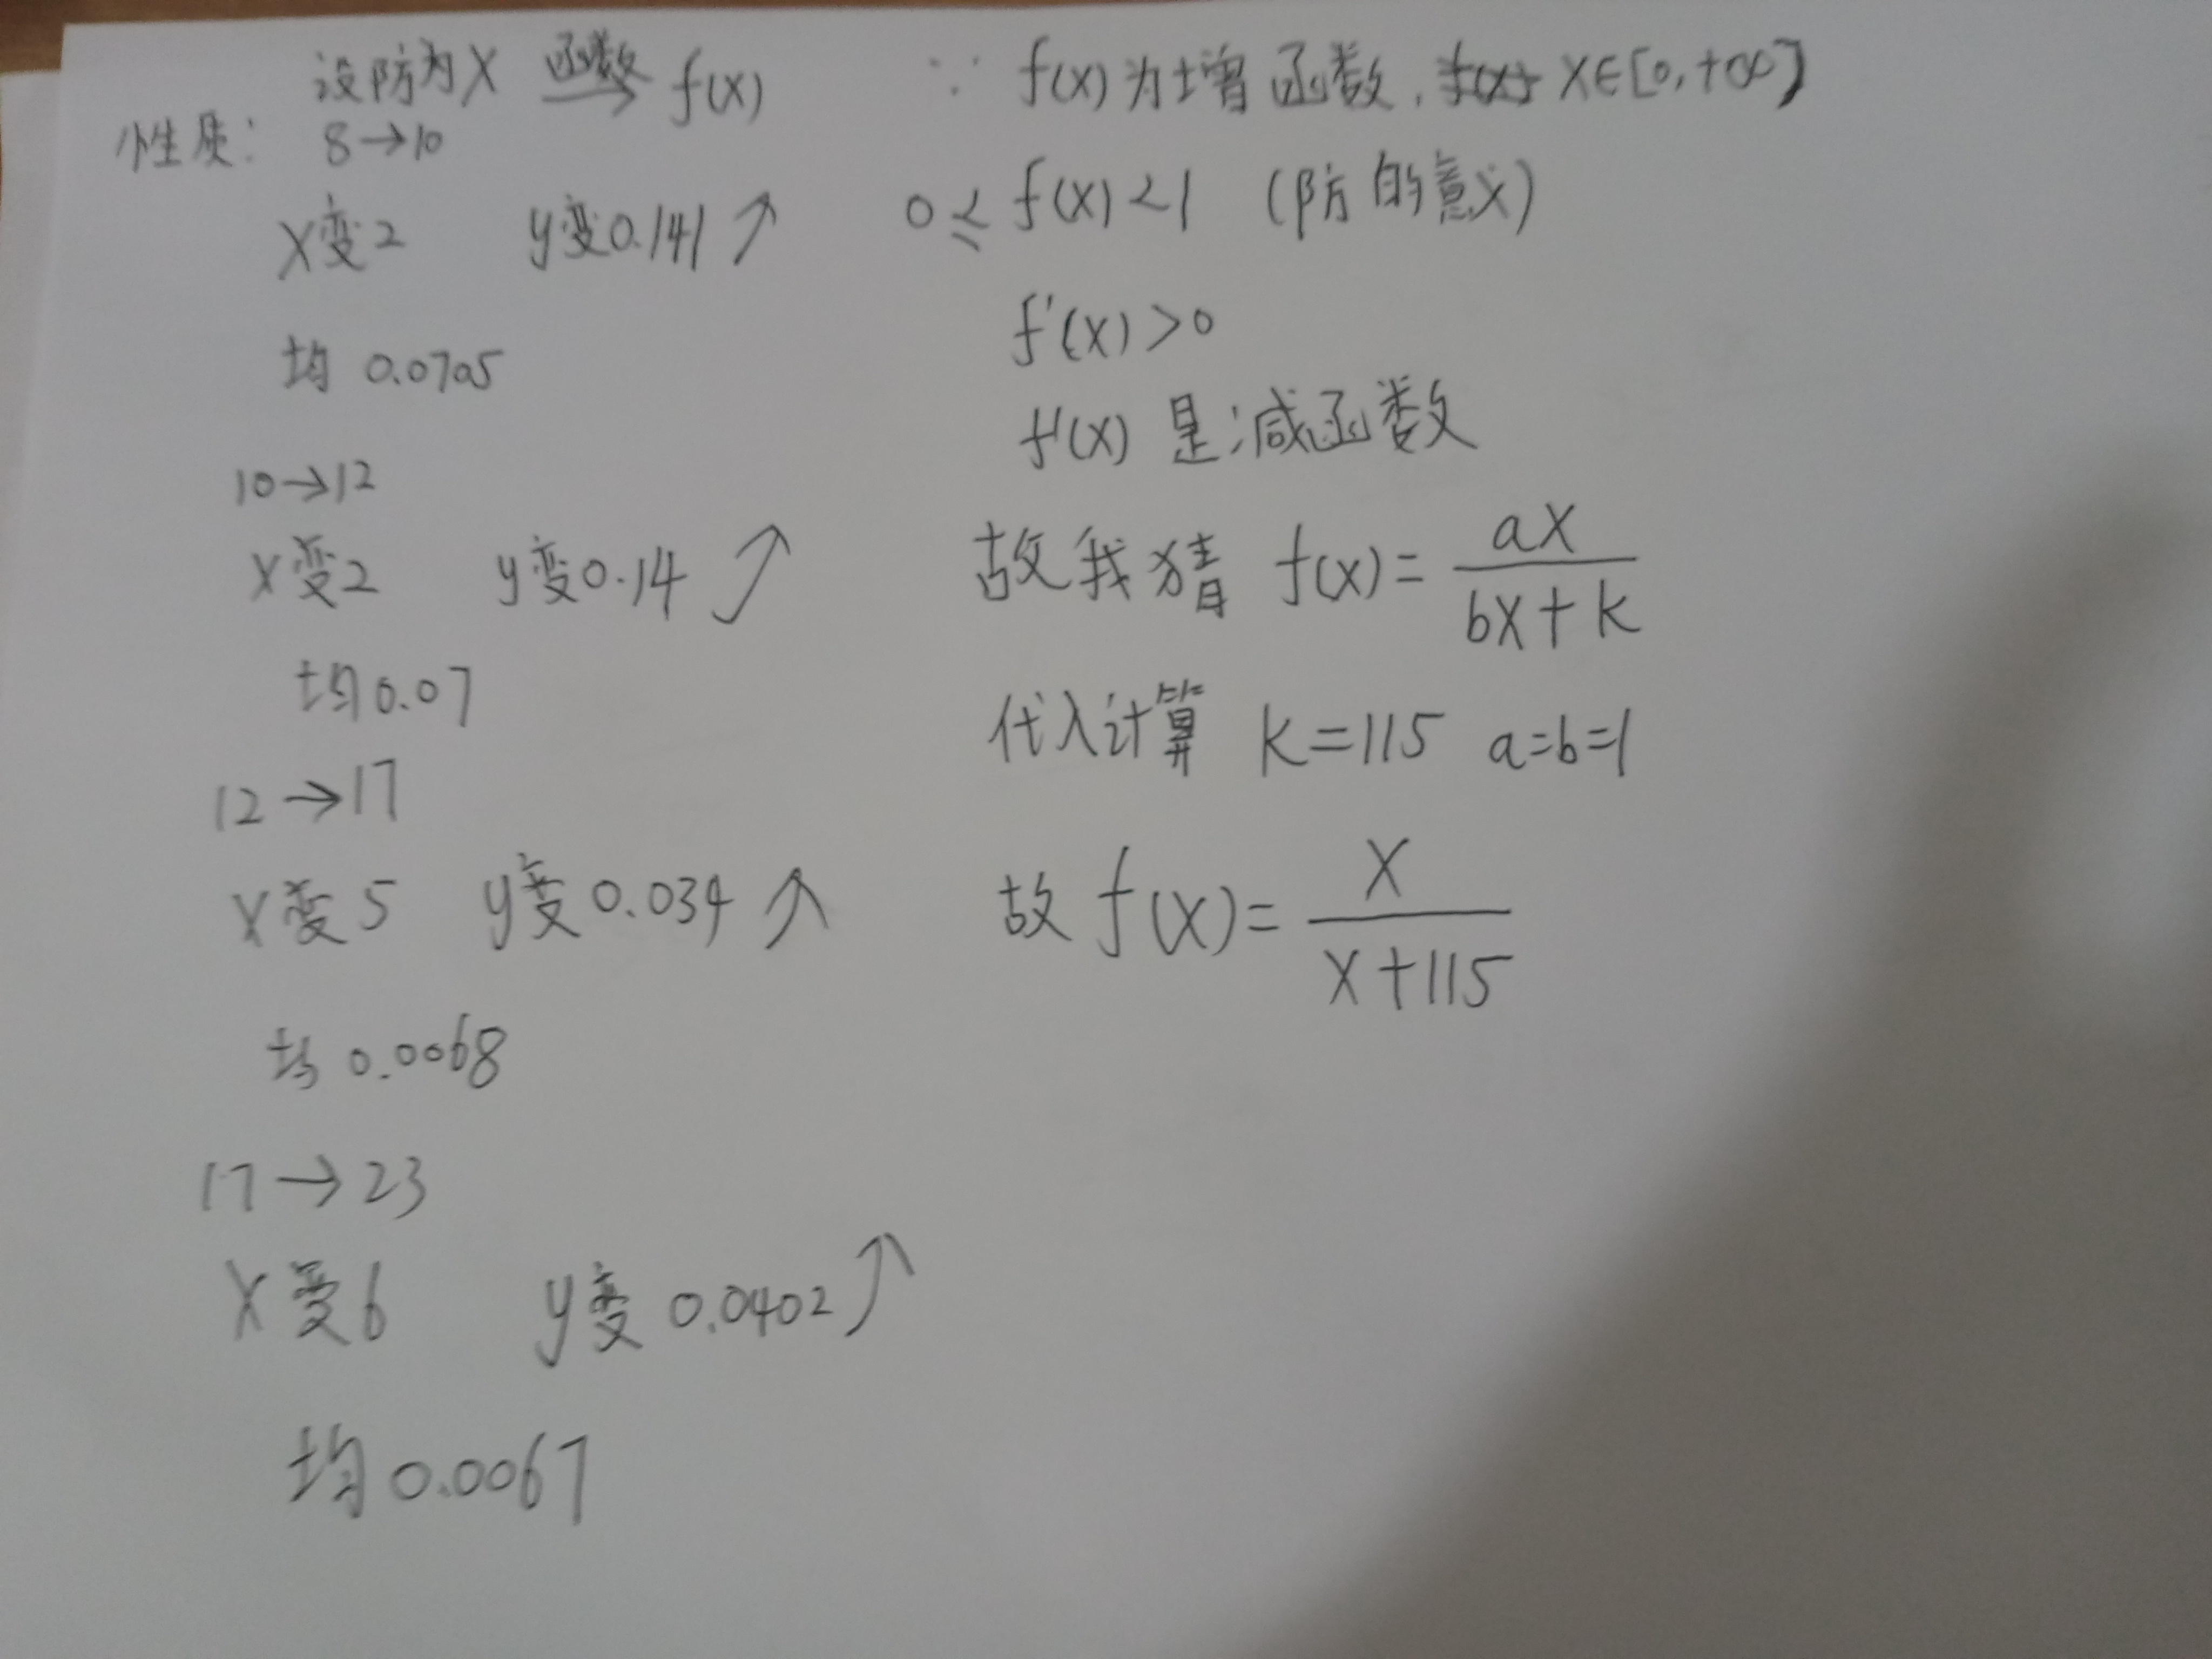 设防为X 函数→ f(x)
性质: 8→10
X变2 y变0.141↗
均 0.0705
10→12
X变2 y变0.14↗
均0.07
12→17
X变5 y变0.034↗
均0.0068
17→23
X变6 y变0.0402↗
均0.0067
∵ f(x)为增函数, X∈[0,+∞]
0≤f(x)<1 (防的意义)
f'(x)>0
f'(x) 是减函数
故我猜 f(x)=aX/(bX+k)
代入计算 k=115 a=b=1
故 f(x)=X/(X+115)